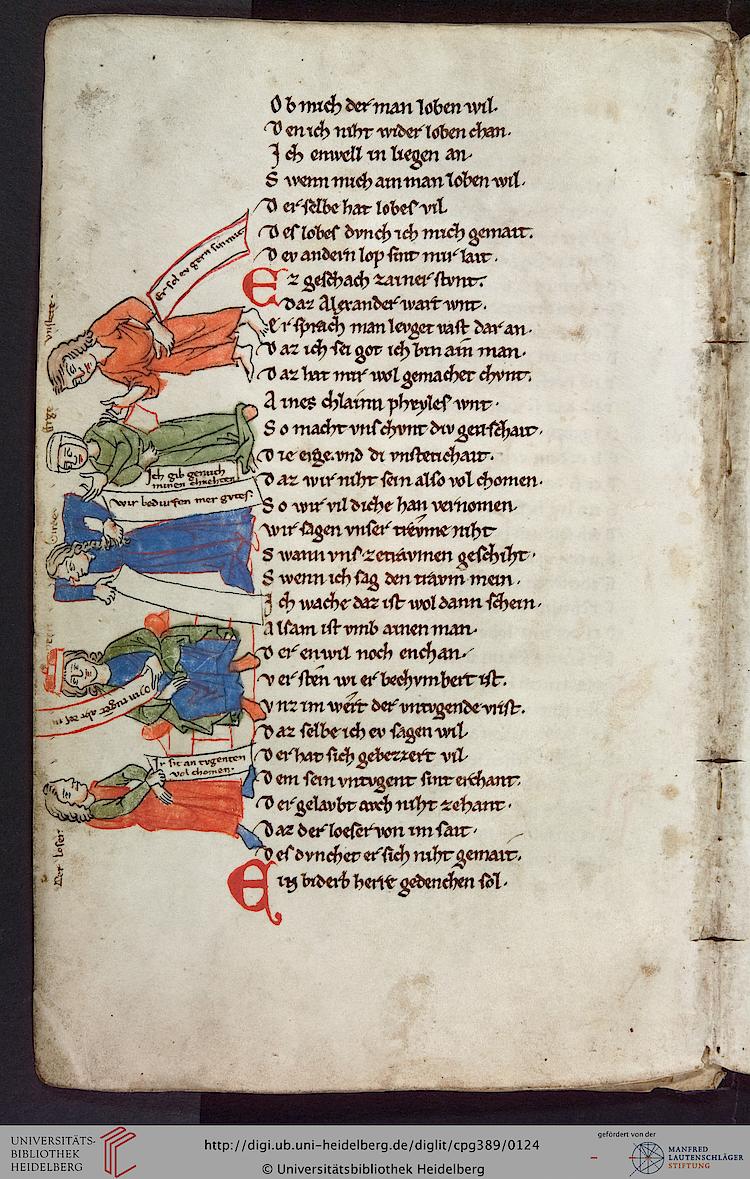 Ob mich der man loben wil.
Den ich niht wider loben chan.
Ich enwell in liegen an
Swenn mich ain man loben wil.
Der selbe hat lobes vil
Des lobes dvnch ich mich gemait.
Dev andern lop sint mir lait.
Ez geschach zainer stvnt.
Daz Alexander wart wnt.
Er sprach man levget vast dar an.
Daz ich sei got ich bin ain man.
Daz hat mir wol gemachet chvnt.
Aines chlainn pheyles wnt.
So macht vns chvnt div geitschait.
Die erge. vnd di vnstetichait.
Daz wir niht sein also vol chomen.
So wir vil diche han vernomen.
wir sagen vnser trevme niht
Swann vns zetravmen geschiht.
Swenn ich sag den travm mein.
Ich wache daz ist wol dann schein.
Alsam ist vmb ainen man.
Der enwil noch enchan.
versten wi er bechvmbert ist.
Vnz im wert der vntvgende vrist.
Daz selbe ich ev sagen wil
Der hat sich gebezzert vil
Dem sein vntvgent sint erchant.
Der gelavbt avch niht zehant.
Daz der loeser von im sait.
Des dvnchet er sich niht gemait.
Ein biderb herre gedenchen sol.
vnstete.
Er sol ev gern sin mit
Erge
Ich gib genuch minen chnehten
wir bedurfen mer gvtes.
Ir sit an tvgenten vol chomen.
Der loser
UNIVERSITÄTS-
BIBLIOTHEK
HEIDELBERG
http://digi.ub.uni-heidelberg.de/diglit/cpg389/0124
© Universitätsbibliothek Heidelberg
gefördert von der
MANFRED
LAUTENSCHLÄGER
STIFTUNG